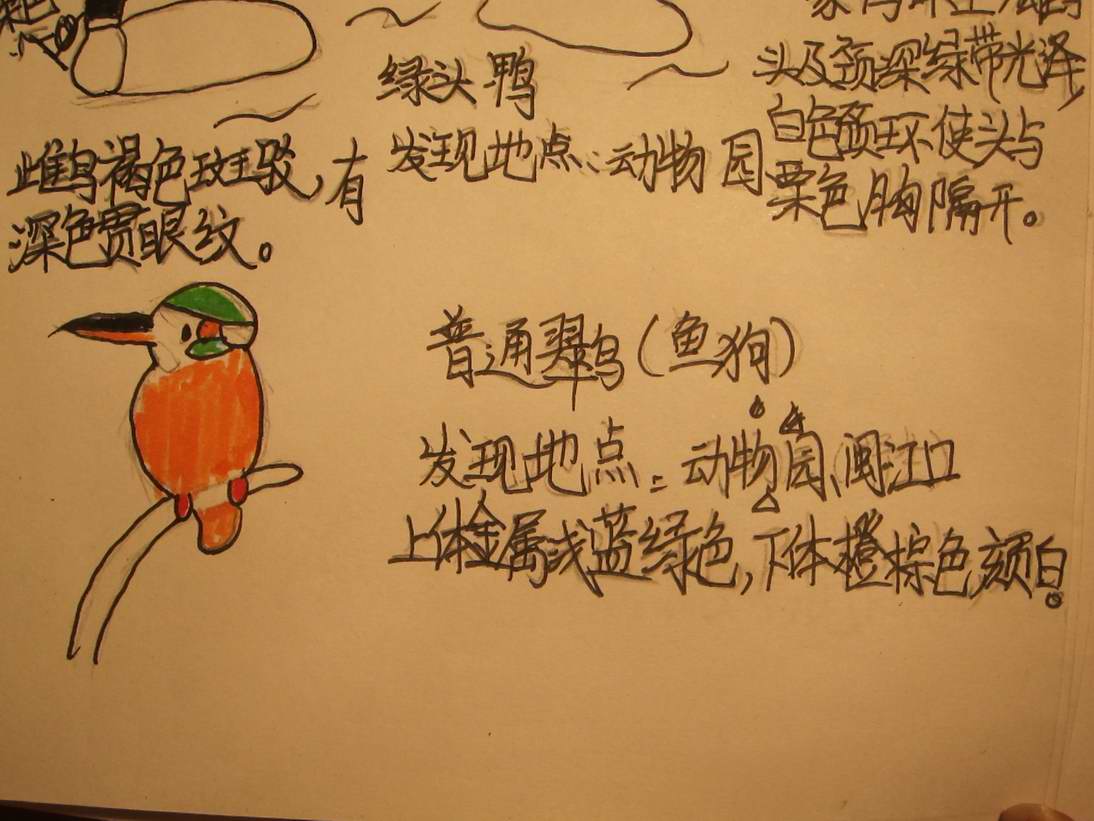 绿头鸭
发现地点:动物园
头及颈深绿带光泽,
白色颈环使头与
栗色胸隔开。
雌鸟褐色斑驳,有
深色贯眼纹。
普通翠鸟(鱼狗)
发现地点:动物园、闽江口
上体金属浅蓝绿色,下体橙棕色,颏白。